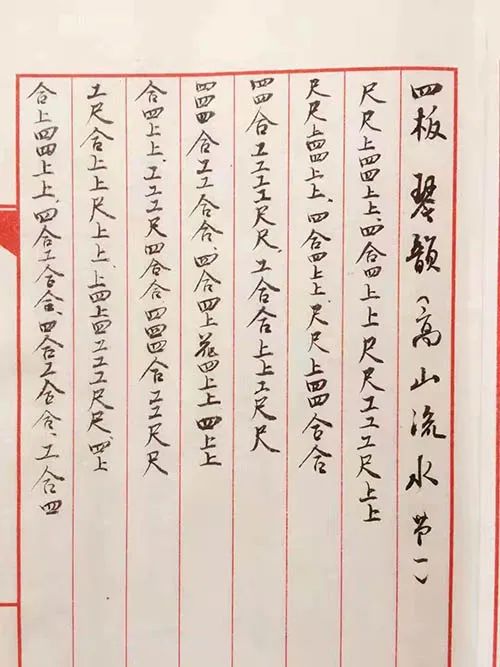 四板 琴韻（高山流水 第一）
尺尺上四四上上、四合四上上尺尺工工工尺上上
尺尺上四四上上、四合四上上、尺尺上四四合合
四四合工工工工尺尺、工合合上上工尺尺
四四四合工工合合、四合四上尺四上上四上上
合四上上、工工工尺四合合四四四合工工尺尺
工尺合上上尺上上、上四上四工工工尺尺、四上
合上四四上上、四合工合合、四合工合合、工合四